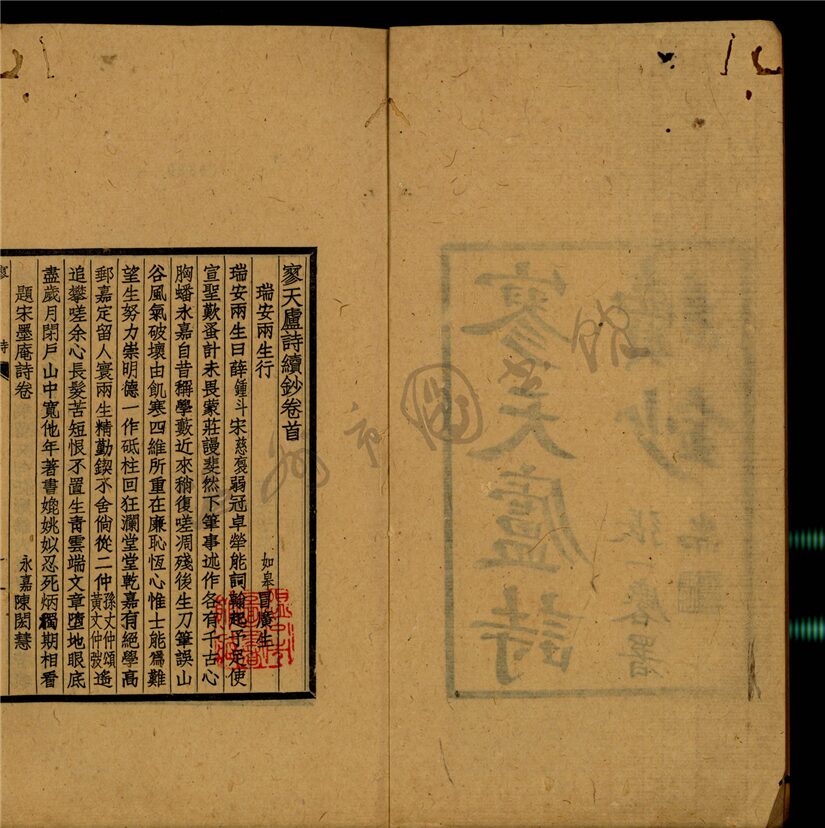 寥天廬詩續鈔卷首
瑞安兩生行　如皋冒廣生
瑞安兩生曰薛鍾斗宋慈裒弱冠卓犖能詞翰起予足使
宣聖歎蚤計未畏蒙莊謾斐然下筆事述作各有千古心
胸蟠永嘉自昔稱學藪近來稍復嗟凋殘後生刀筆誤山
谷風氣破壞由飢寒四維所重在廉恥恆心惟士能爲難
望生努力崇明德一作砥柱回狂瀾堂堂乾嘉有絕學高
郵嘉定留人寰兩生精勤鍥不舍倘從二仲孫丈仲頌黃丈仲弢遙
追攀嗟余心長髮苦短恨不置生靑雲端文章墮地眼底
盡歲月閉戶山中寬他年著書媲姚姒忍死炳燭期相看
題宋墨庵詩卷　永嘉陳閎慧